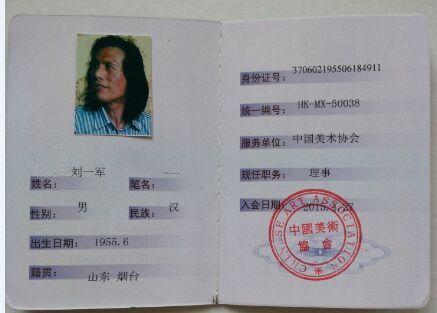 刘一军
姓名： 笔名：
男 汉
性别： 民族：
出生日期： 1955.6
籍贯： 山东 烟台
身份证号： 370602195506184911
统一编号： HK-MX-50038
服务单位： 中国美术协会
现任职务： 理事
入会日期：
CHINESE ART ASSOCIATION
中國美術
協會